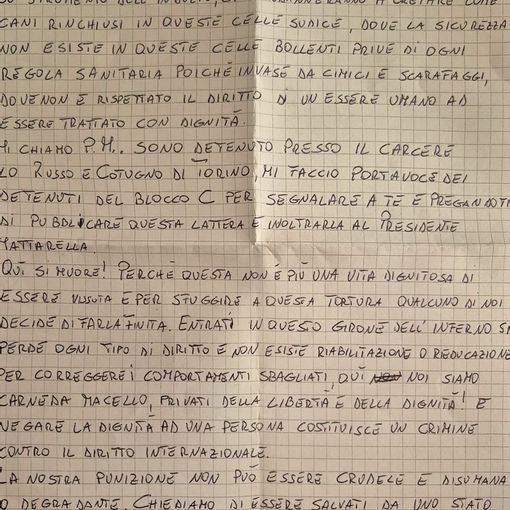 CANI RINCHIUSI IN QUESTE CELLE SUDICE, DOVE LA SICUREZZA
NON ESISTE IN QUESTE CELLE BOLLENTI PRIVE DI OGNI
REGOLA SANITARIA POICHÉ INVASE DA CIMICI E SCARAFAGGI,
DOVE NON È RISPETTATO IL DIRITTO DI UN ESSERE UMANO AD
ESSERE TRATTATO CON DIGNITÀ.
MI CHIAMO P.M.. SONO DETENUTO PRESSO IL CARCERE
LO RUSSO E COTUGNO DI TORINO, MI FACCIO PORTAVOCE DEI
DETENUTI DEL BLOCCO C PER SEGNALARE A TE E PREGANDOTI
DI PUBBLICARE QUESTA LATTERA E INOLTRARLA AL PRESIDENTE
MATTARELLA.
QUI SI MUORE! PERCHÉ QUESTA NON È PIÙ UNA VITA DIGNITOSA DI
ESSERE VISSUTA E PER SFUGGIRE A QUESTA TORTURA QUALCUNO DI NOI
DECIDE DI FARLA FINITA. ENTRATI IN QUESTO GIRONE DELL'INFERNO SI
PERDE OGNI TIPO DI DIRITTO E NON ESISTE RIABILITAZIONE O RIEDUCAZIONE
PER CORREGGERE I COMPORTAMENTI SBAGLIATI, QUI NOI SIAMO
CARNE DA MACELLO, PRIVATI DELLA LIBERTÀ E DELLA DIGNITÀ! E
NEGARE LA DIGNITÀ AD UNA PERSONA COSTITUISCE UN CRIMINE
CONTRO IL DIRITTO INTERNAZIONALE.
LA NOSTRA PUNIZIONE NON PUÒ ESSERE CRUDELE E DISUMANA
O DEGRADANTE. CHIEDIAMO DI ESSERE SALVATI DA UNO STATO